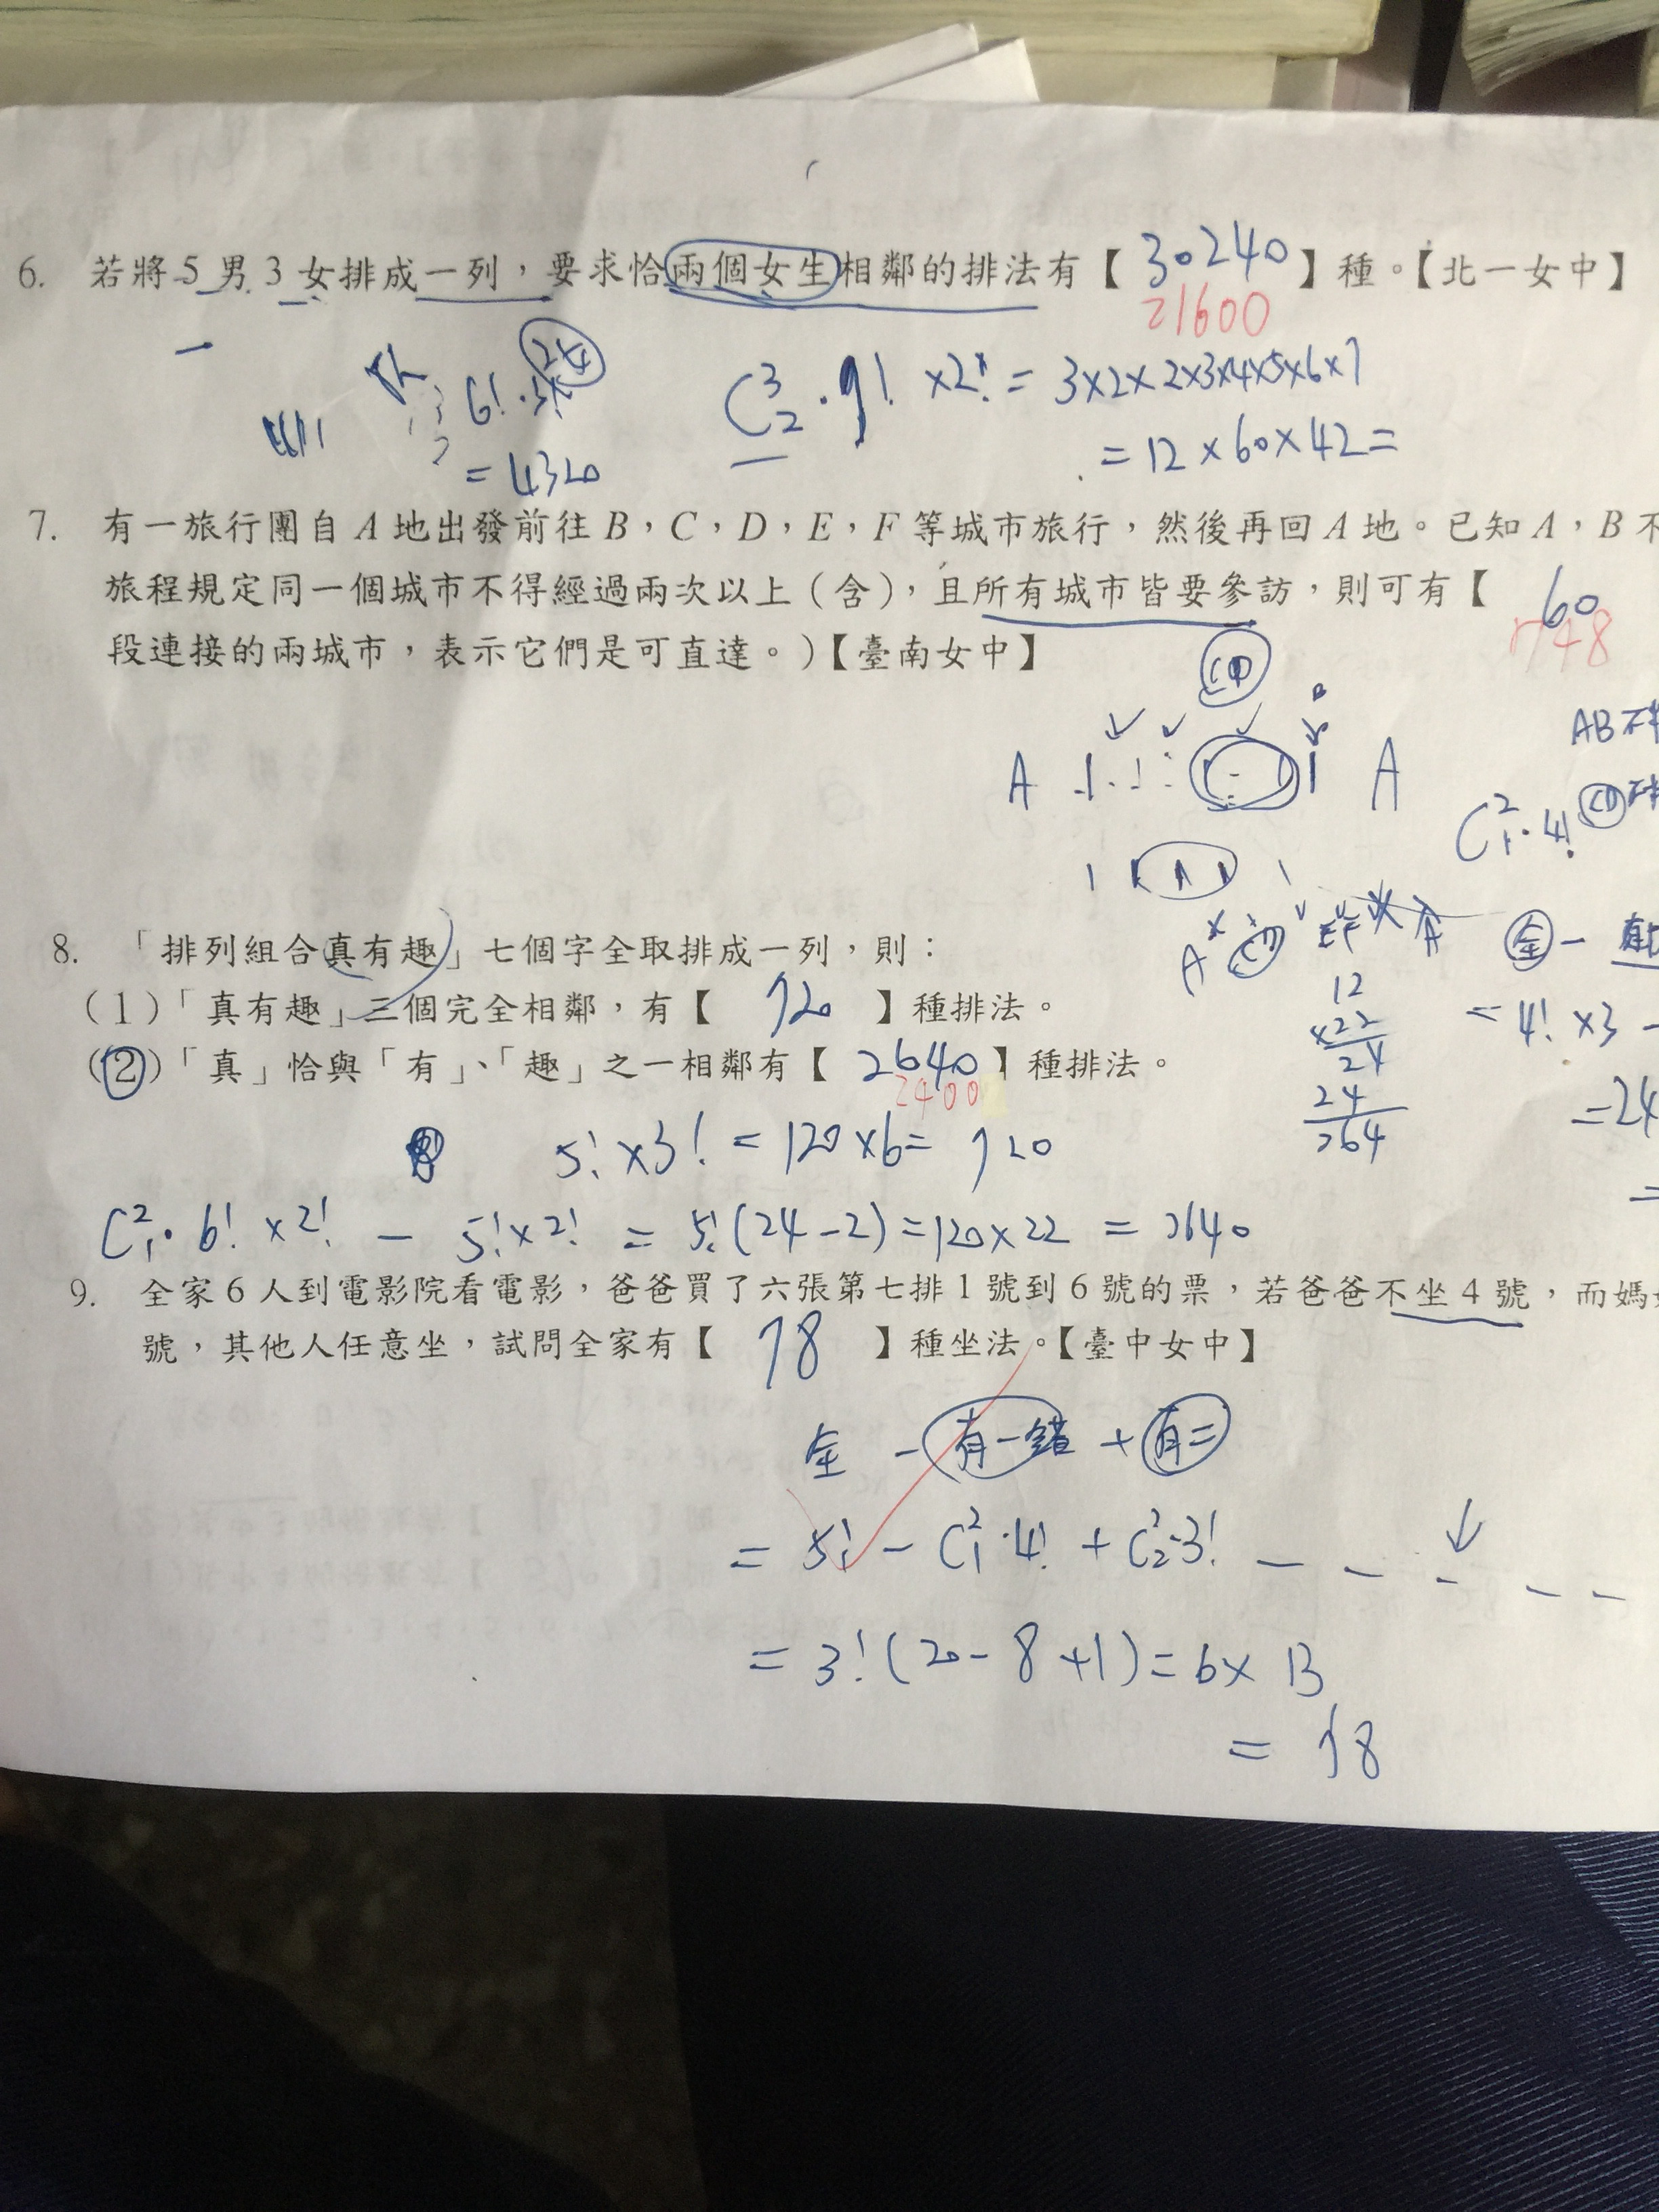 6. 若將5男3女排成一列，要求恰兩個女生相鄰的排法有【 30240 】種。【北一女中】
21600
6!·3!
= 4320
C³₂·7! ×2! = 3×2×2×3×4×5×6×7
= 12×60×42=
7. 有一旅行團自A地出發前往B，C，D，E，F等城市旅行，然後再回A地。已知A，B不
旅程規定同一個城市不得經過兩次以上（含），且所有城市皆要參訪，則可有【 60
48
段連接的兩城市，表示它們是可直達。）【臺南女中】
CD
A A
AB不
C²₁·4!
8. 「排列組合真有趣」七個字全取排成一列，則：
全 -
(1)「真有趣」三個完全相鄰，有【 720 】種排法。
12
×22
24
24
264
= 4! ×3 -
(2)「真」恰與「有」、「趣」之一相鄰有【 2640 】種排法。
2400
=24
5! ×3! = 120×6= 720
C²₁·6! ×2! - 5!×2! = 5!(24-2)=120×22 = 2640
9. 全家6人到電影院看電影，爸爸買了六張第七排1號到6號的票，若爸爸不坐4號，而媽
號，其他人任意坐，試問全家有【 78 】種坐法。【臺中女中】
全 - 有一錯 + 有二
= 5! - C²₁·4! + C²₂·3!
= 3!(20-8+1)=6×13
= 78